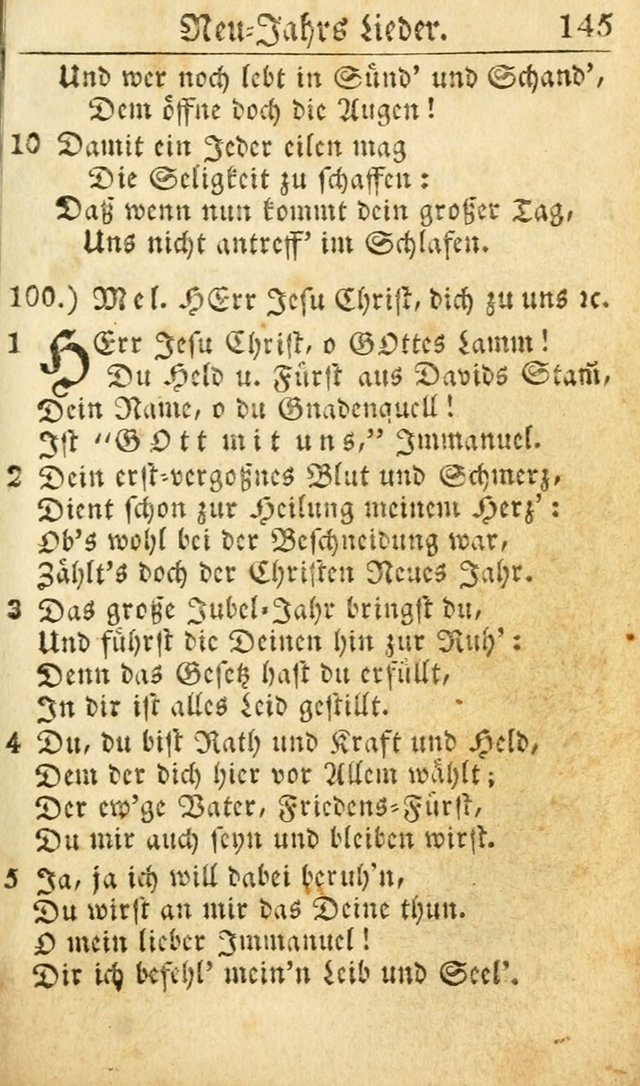 Neu-Jahrs Lieder. 145
Und wer noch lebt in Sünd' und Schand',
Dem öffne doch die Augen!
10 Damit ein Jeder eilen mag
Die Seligkeit zu schaffen:
Daß wenn nun kommt dein großer Tag,
Uns nicht antreff' im Schlafen.
100.) Mel. HErr Jesu Christ, dich zu uns ꝛc.
1 HErr Jesu Christ, o GOttes Lamm!
Du Held u. Fürst aus Davids Stam̄,
Dein Name, o du Gnadenquell!
Ist “GOtt mit uns,” Immanuel.
2 Dein erst-vergoßnes Blut und Schmerz,
Dient schon zur Heilung meinem Herz':
Ob's wohl bei der Beschneidung war,
Zählt's doch der Christen Neues Jahr.
3 Das große Jubel-Jahr bringst du,
Und führst die Deinen hin zur Ruh':
Denn das Gesetz hast du erfüllt,
In dir ist alles Leid gestillt.
4 Du, du bist Rath und Kraft und Held,
Dem der dich hier vor Allem wählt;
Der ew'ge Vater, Friedens-Fürst,
Du mir auch seyn und bleiben wirst.
5 Ja, ja ich will dabei beruh'n,
Du wirst an mir das Deine thun.
O mein lieber Immanuel!
Dir ich befehl' mein'n Leib und Seel'.